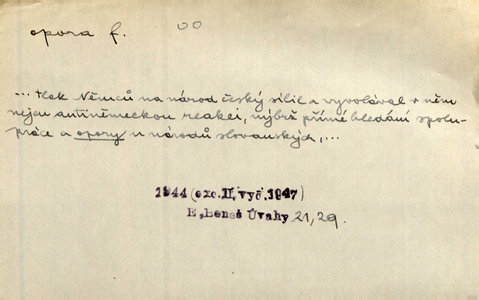 opora f. 00
... tlak Němců na národ český sílil a vyvolával v něm
nejen antiněmeckou reakci, nýbrž přímé hledání spolu-
práce a opory u národů slovanských,...
1944(exc.II.vyd.1947)
E.Beneš Úvahy 21,29.